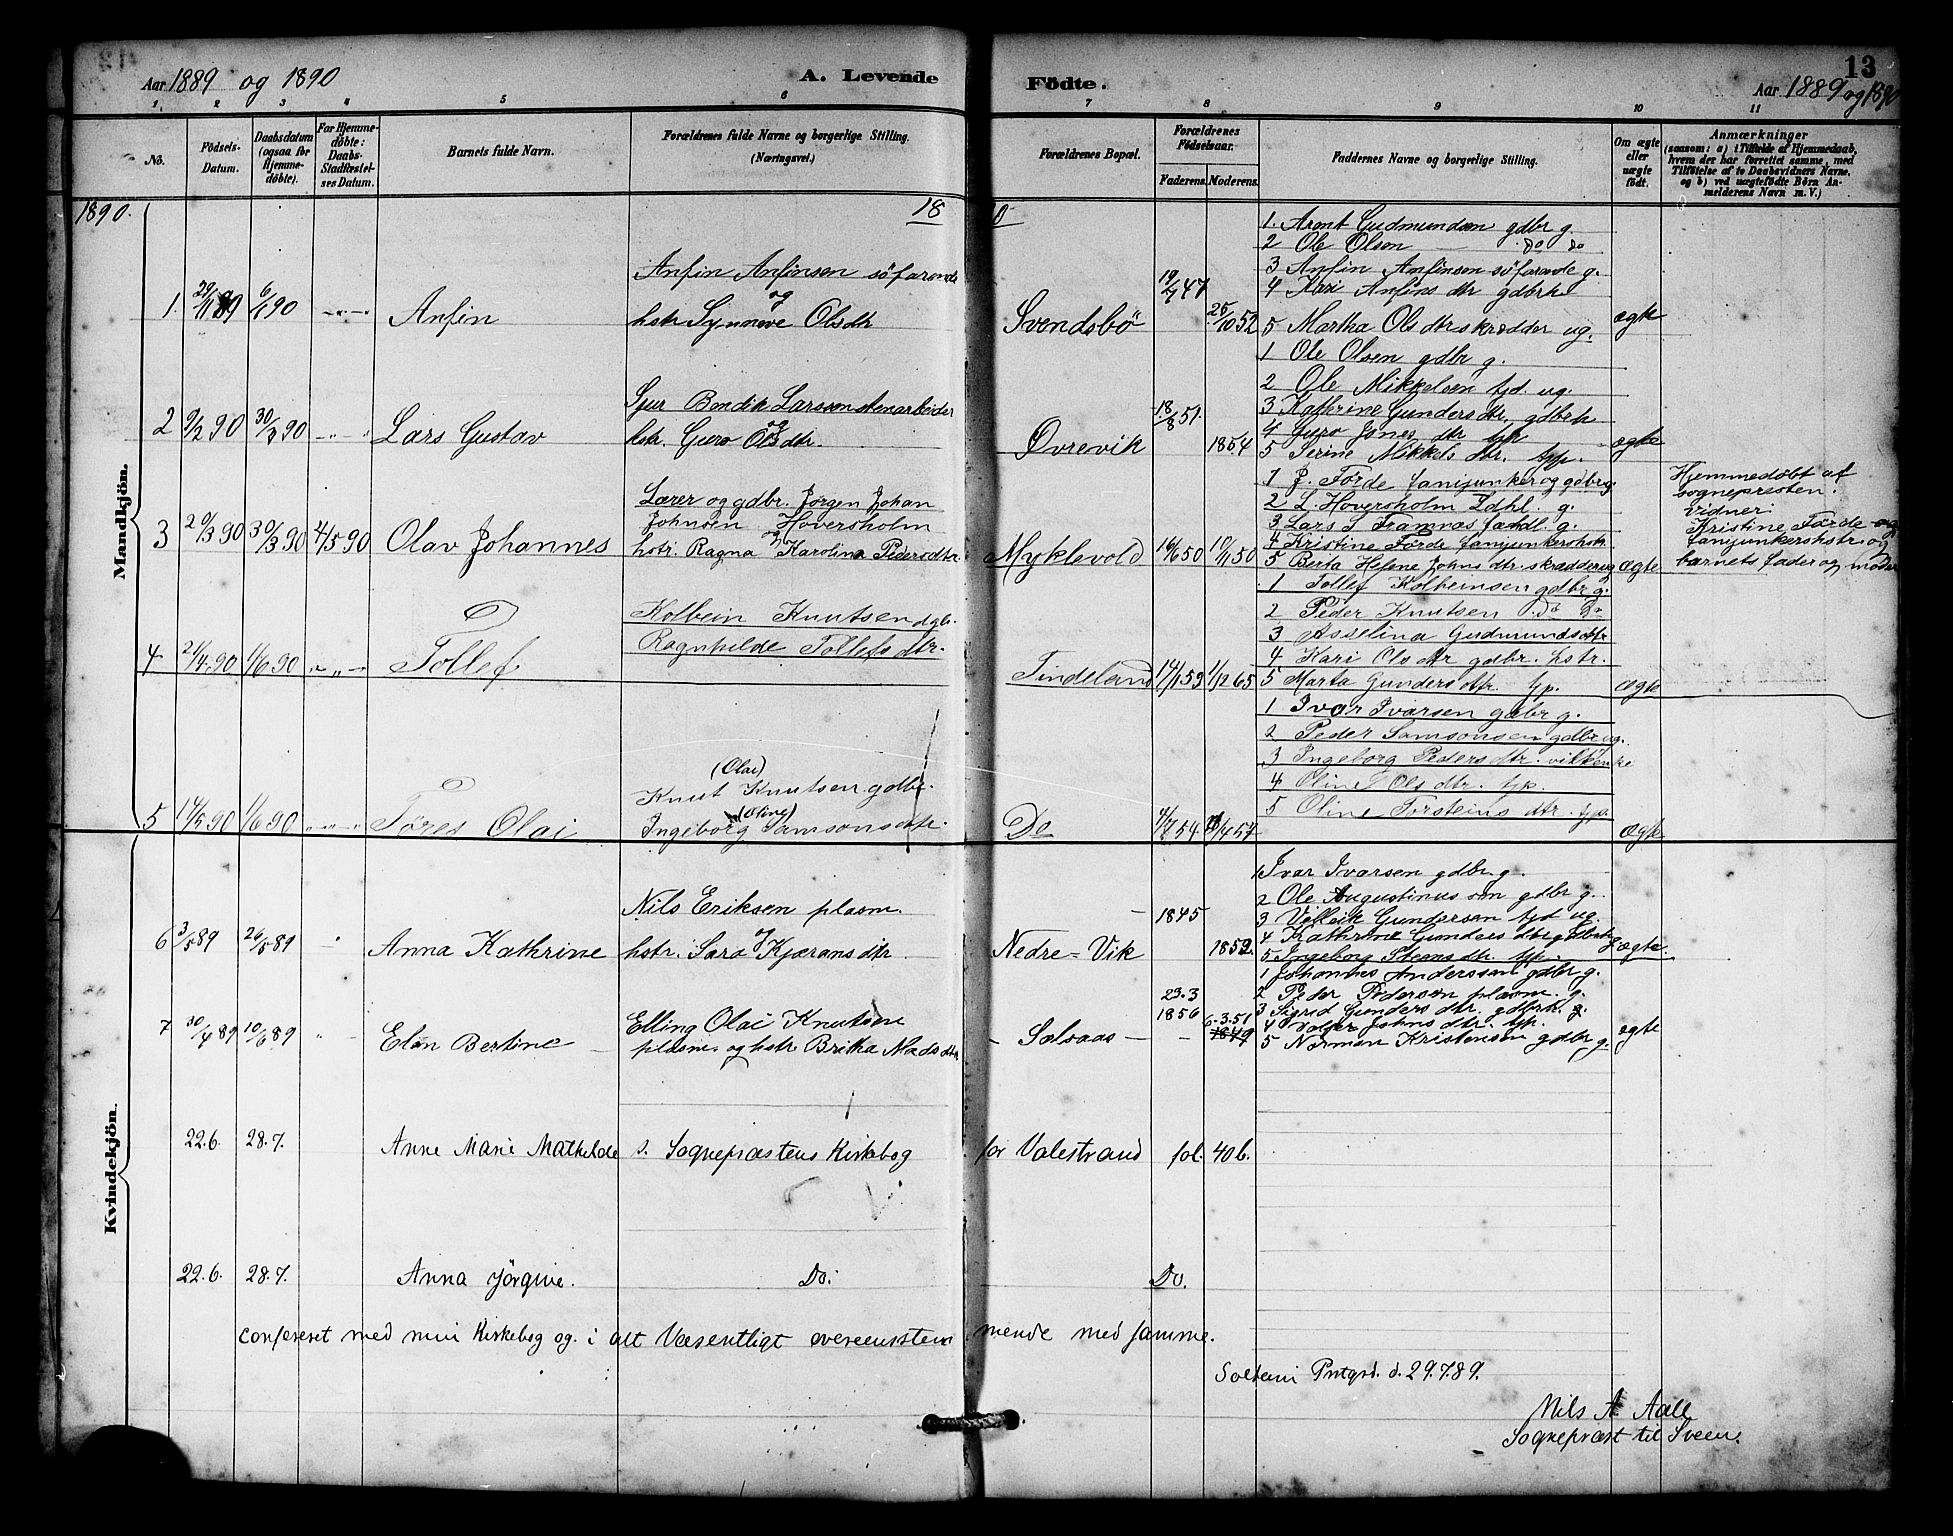 Aar 1889 og 1890
A. Levende
Födte.
13
Aar 1889 og 1890
1 2 3 4 5 6 7 8 9 10 11
No.
Födsels-Datum.
Daabsdatum (ogsaa for Hjemme-döbte).
For Hjemme-döbte: Daabs-Stadfæstel-ses Datum.
Barnets fulde Navn.
Forældrenes fulde Navne og borgerlige Stilling. (Næringsvei.)
Forældrenes Bopæl.
Forældrenes Födselsaar.
Faderens. Moderens.
Faddernes Navne og borgerlige Stilling.
Om ægte eller uægte födt.
Anmærkninger
(saasom: a) i Tilfælde af Hjemmedaab, hvem der har forrettet samme, med Tilföielse af to Daabsvidners Navne. og b) ved uægtefödte Börn Anmelderens Navn m. V.)
1890.
18
Mandkjön.
1. 29/11 89 6/1 90 Anfin
Anfin Anfinsen söfarende
og
hstr Synneve Olsdtr
Svendsbö
19/7 47
25/10 52
1. Arent Gudmundsen gdbr g.
2 Ole Olsen do do
3 Anfin Anfinsen söfarende g.
4 Kari Anfins dtr gdbrk
5 Martha Ols dtr skrædder ug.
ægte
2 9/2 90 30/3 90 Lars Gustav
Sjur Bendik Larssen stenarbeider
og
hstr. Guro Olsdtr.
Ovrevik
18/8 51.
1854
1 Ole Olsen gdbr g.
2 Ole Mikkelsen tjd ug.
3 Kathrine Gunders dtr, gdbrk
4 Guro Jones dtr tjk
5 Serine Mikkels dtr. tjp.
ægte
3 20/3 90 30/3 90 4/5 90 Olav Johannes
Lærer og gdbr. Jørgen Johan
Johnsen Hoversholm
og
hstr. Ragna Karolina Pedersdtr
Myklevold
16/6 50
10/11 50
1 J. Förde fanejunker og gdbr g
2 L. Hoversholm Ldhl. g.
3 Lars T. Framnæs fændl. g.
4 Kristine Förde fanejunkershstr
5 Berta Helene Johns dtr. skrædder ug
ægte
Hjemmedöbt af
sognepresten.
Vidner:
Kristine Förde
fanejunkershstr. og
barnets fader og moder
4 21/4 90 1/6 90 Tollef
Kolbein Knutsen gdb.
Ragnhilde Tollefs dtr.
Tindeland
14/1 59
1/12 65
1 Tollef Kolbeinsen gdbr g.
2 Peder Knutsen do do
3 Asselina Gudmundsdtr
4 Kari Ols dtr gdbr. hstr.
5 Marta Gunders dtr. tjp.
ægte
5 17/5 90 1/6 90 Töres Olai
(Olai)
Knut Knutsen gdbr.
(Oline)
Ingeborg Samsons dtr.
Do
4/7 54
1 Ivar Ivarsen gdbr g.
2 Peder Samsonsen gdbr ug.
3 Ingeborg Peders dtr.
4 Oline T Ols dtr. tjp.
5 Oline Torsteins dtr. tjp.
ægte
Kvindekjön.
6 3/5 89 26/5 89 Anna Kathrine
Nils Eriksen plasm.
og
hstr. Sara Kjærans dtr.
Nedre=Vik
1845
1852.
1 Ivar Ivarsen gdbr g.
2 Ole Augustinussen gdbr g.
3 Villeik Gundersen tjd ug.
4 Kathrine Gunders dtr gdbrk g
5 Ingeborg Steens dtr. tjp.
ægte.
7 30/4 89 10/6 89 Elen Bertine
Elling Olai Knutsen
plasm. og hstr Britha Mads dtr
Solvaas
23.3
1856
6.3.51
1849
1 Johannes Anderssen gdbr g.
2 Peder Pedersen plasm. g.
3 Sigrid Gunders dtr. gdbrk g.
4 Johns dtr. tjp.
5 Norman Kristensen gdbr g.
ægte
22.6. 28.7. Anne Marie Mathilde s. Sognepræstens Kirkebog for Valestrand fol. 40 b.
22.6. 28.7. Anna Jörgine. Do. Do.
Confereret med min Kirkebog og i alt Væsentligt overeensstemmende med samme.
d. 29.7.89.
Nils A Aall
Sognepræst til Sveen.